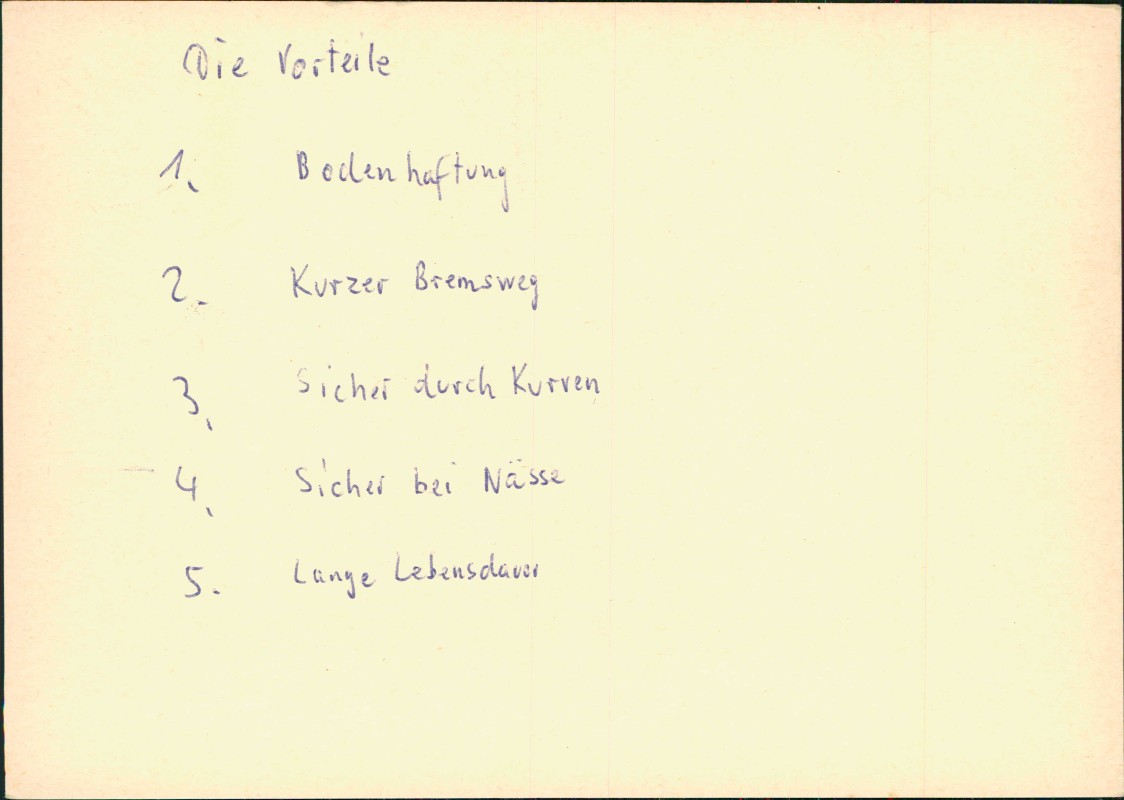 Die Vorteile
1. Bodenhaftung
2. Kurzer Bremsweg
3. Sicher durch Kurven
4. Sicher bei Nässe
5. Lange Lebensdauer